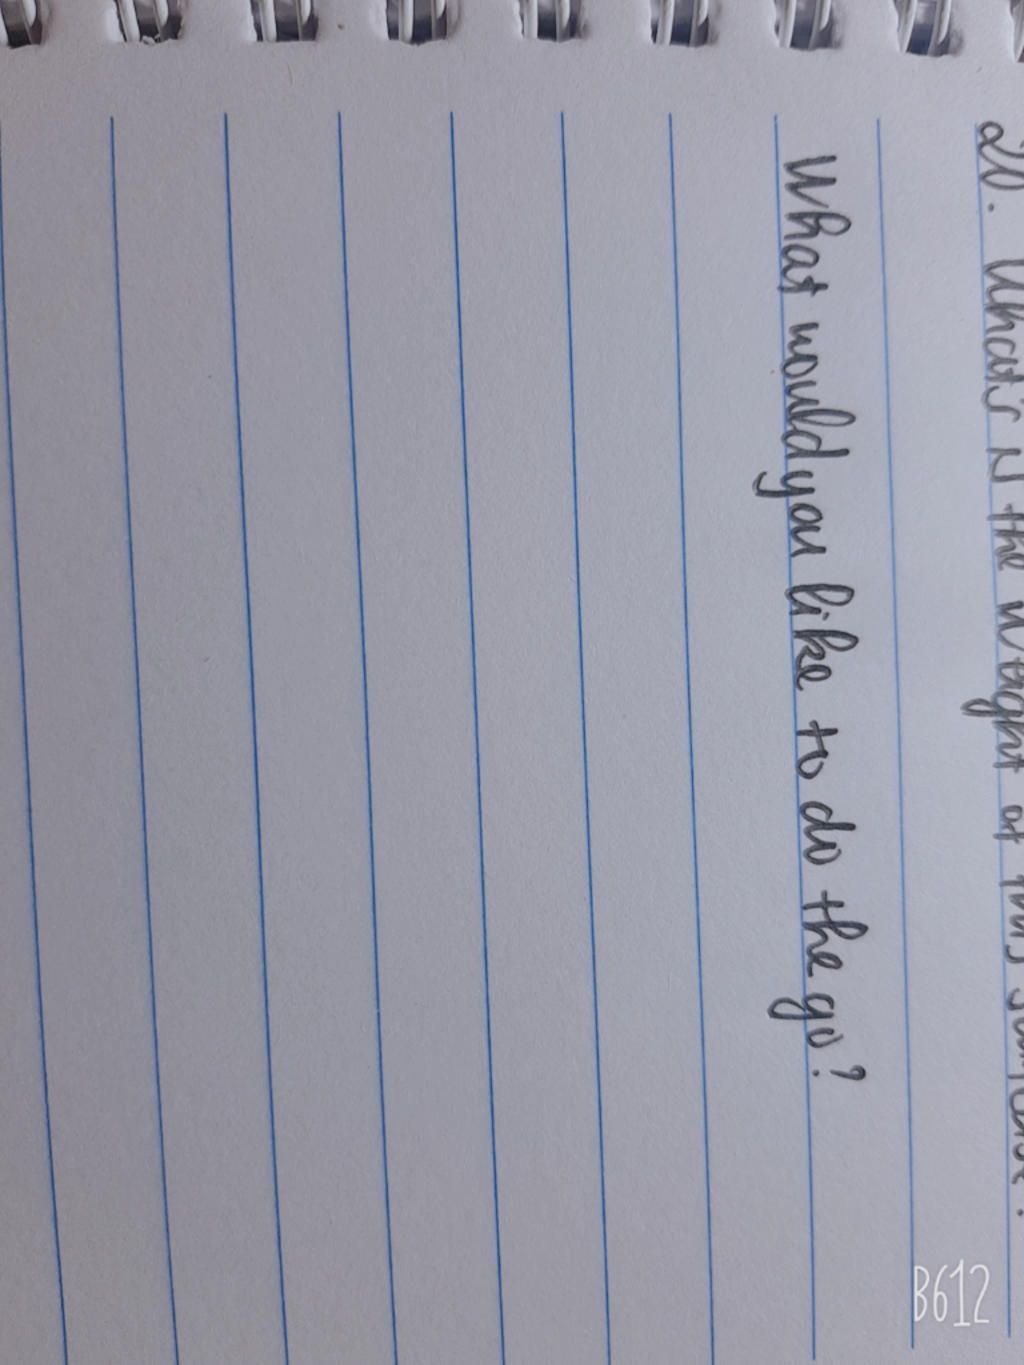 20. What's is the weight of this suitcase?
What would you like to do the go?
B612